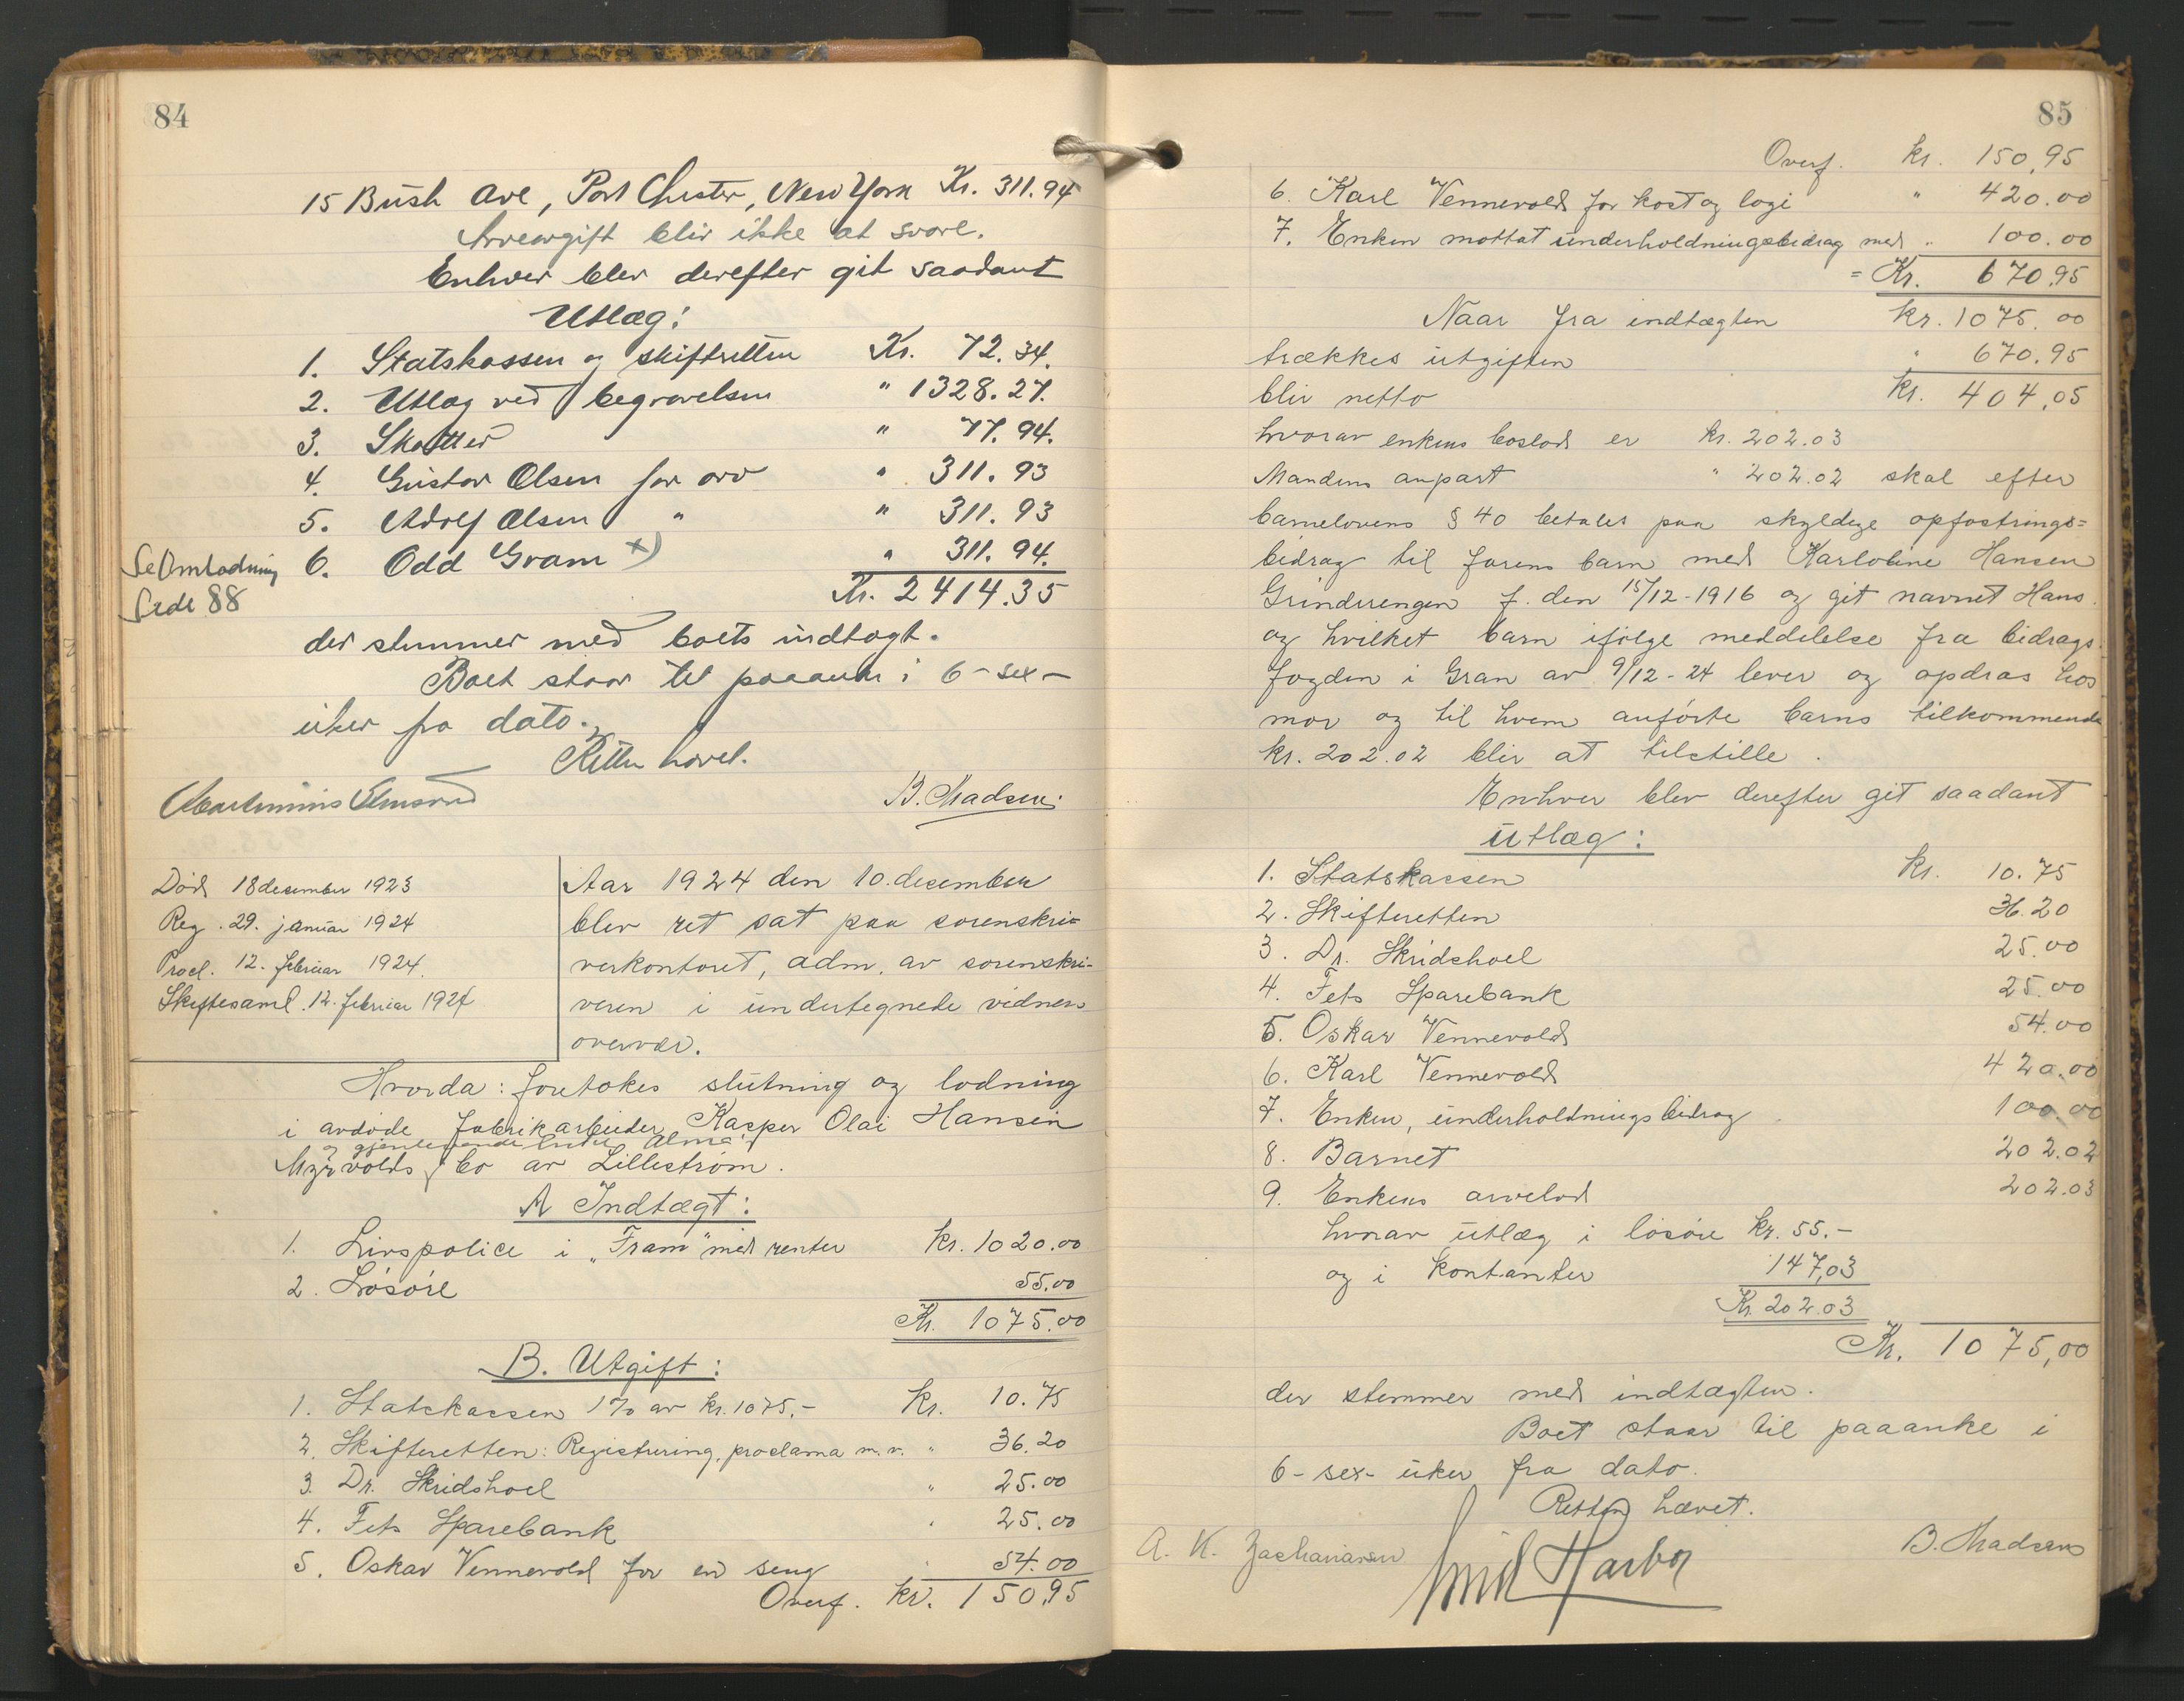 84
15 Bush Ave, Port Chester, New York Kr. 311.94
Arveavgift blir ikke at svare.
Enhver blev derefter git saadant
Utlæg:
1. Statskassen og skifteretten Kr. 72.34.
2. Utlæg ved begravelsen " 1328.27.
3. Skatter " 77.94.
4. Gustav Olsen for arv " 311.93
5. Adolf Olsen " " 311.93
Se Omlodning 6. Odd Gram x) " 311.94.
Side 88
Kr. 2414.35
der stemmer med boets indtægt.
Boet staar til paaanke i 6 - sex -
uker fra dato.
Retten hævet.
B. Madsen.
Død 18 desember 1923
Reg. 29. januar 1924
Procl. 12. februar 1924.
Skiftesaml. 12. februar 1924
Aar 1924 den 10. desember
blev ret sat paa sorenskri-
verkontoret, adm. av sorenskri-
veren i undertegnede vidners
overvær.
Hvorda: foretokes slutning og lodning
i avdøde fabrikarbeider Kasper Olai Hansen
og gjenlevende enke Alma's
Myrvolds bo av Lillestrøm.
A Indtægt:
1. Livspolice i „Fram" med renter kr. 1020.00
2. Løsøre 55.00
Kr. 1075.00
B. Utgift:
1. Statskassen 1% av kr. 1075.- Kr. 10.75
2. Skifteretten: Registrering, proclama m.v. " 36.20
3. Dr. Skridshoel " 25.00
4. Fets Sparebank " 25.00
5. Oskar Vennevold for en seng " 54.00
Overf. kr. 150.95
85
Overf. kr. 150.95
6. Karl Vennevold for kost og logi " 420.00
7. Enken mottat underholdningsbidrag med " 100.00
= Kr. 670.95
Naar fra indtægten kr. 1075.00
trækkes utgiften " 670.95
blir netto kr. 404.05
hvorav enkens boslod er kr. 202.03
Mandens anpart " 202.02 skal efter
barnelovens § 40 betales paa skyldige opfostrings=
bidrag til farens barn med Karloline Hansen
Grinderengen f. den 15/12-1916 og git navnet Hans.
og hvilket barn ifølge meddelelse fra bidrags.
fogden i Gran av 9/12-24 lever og opdras hos
mor og til hvem anførte barns tilkommende
kr. 202.02 blir at tilstille.
Enhver blev derefter git saadant
utlæg:
1. Statskassen Kr. 10.75
2. Skifteretten 36.20
3. Dr. Skridshoel 25.00
4. Fets Sparebank 25.00
5. Oskar Vennevold 54.00
6. Karl Vennevold 420.00
7. Enken, underholdningsbidrag 100.00
8. Barnet 202.02
9. Enkens arvelod 202.03
hvorav utlæg i løsøre kr. 55.-
og i kontanter 147,03
Kr. 202.03
Kr. 1075,00
der stemmer med indtægten.
Boet staar til paaanke i
6 - sex - uker fra dato.
Retten hævet.
A. K. Zachariassen Emil Harboe B. Madsen